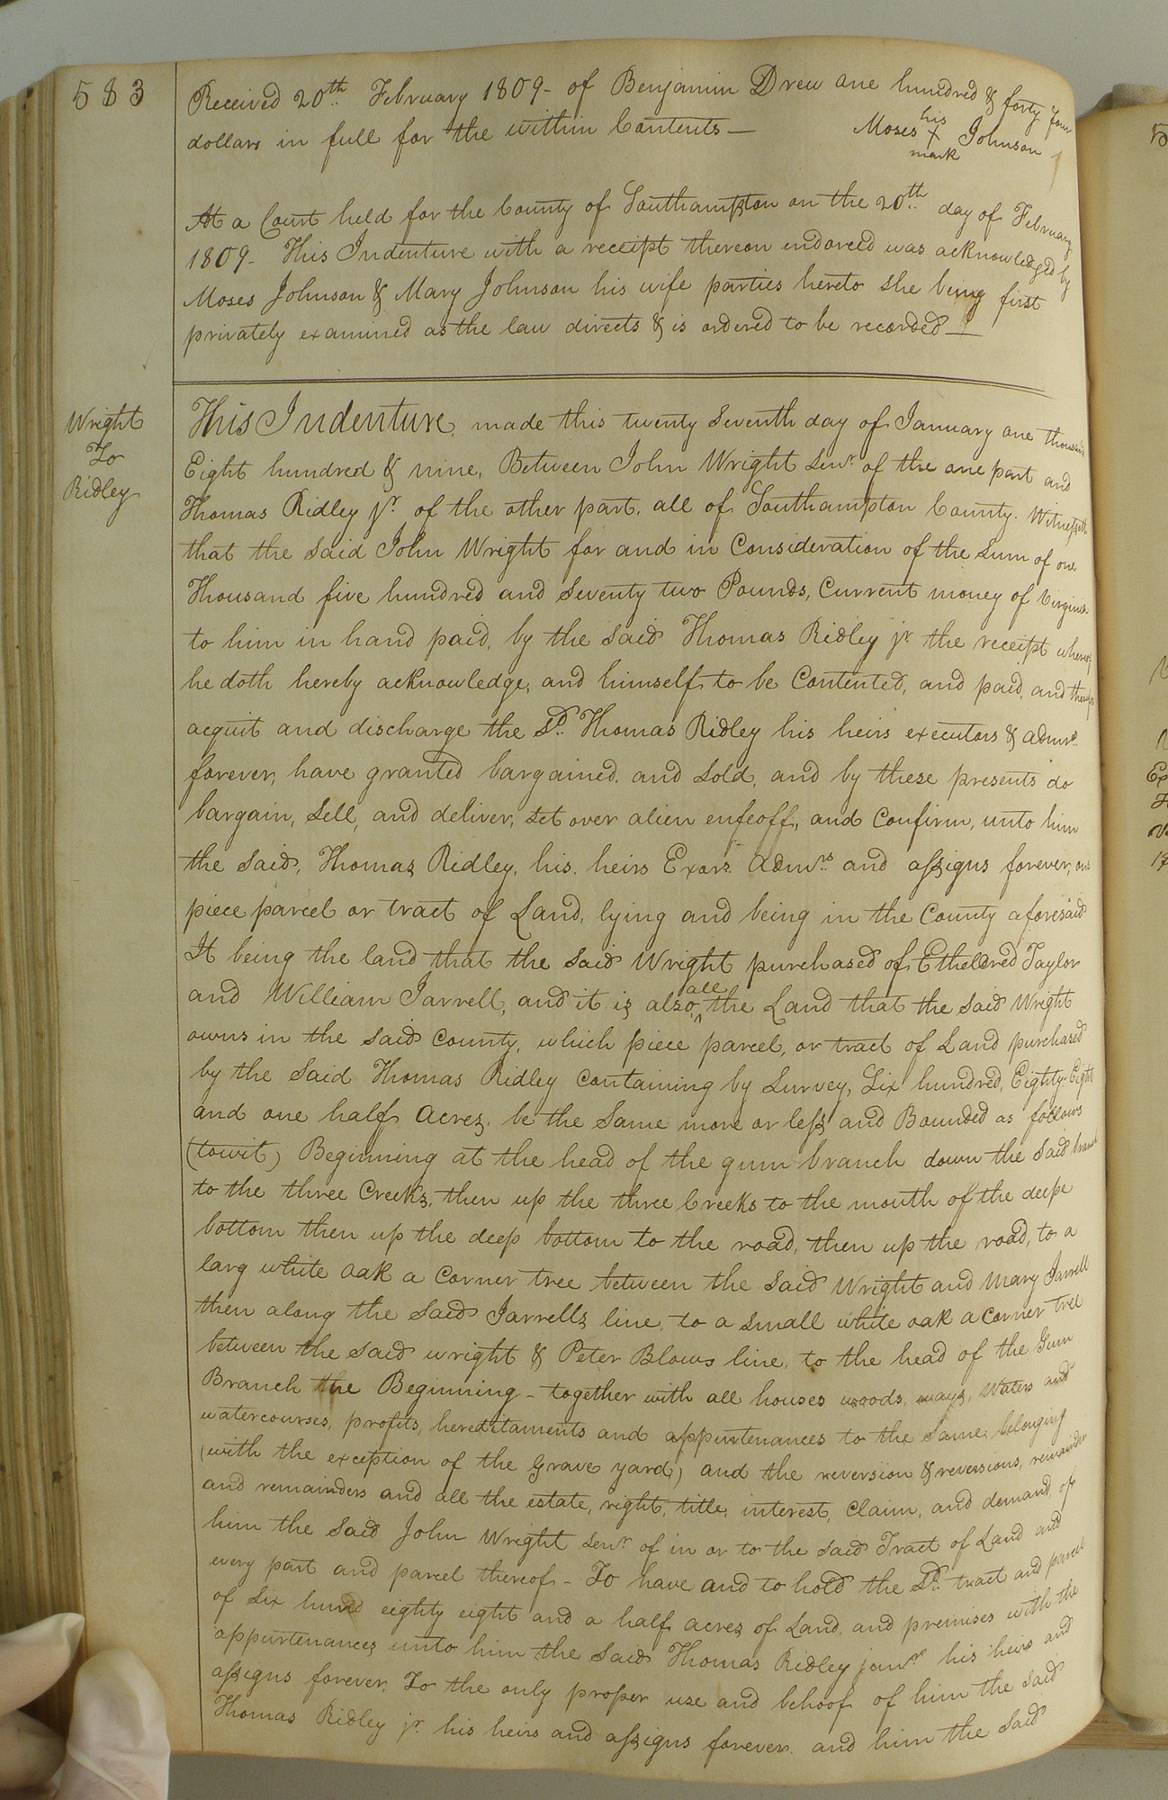 583
Received 20th February 1809 - of Benjamin Drew one hundred & forty four
dollars in full for the within Contents —
his
Moses X Johnson
mark
At a Court held for the County of Southampton on the 20th day of February
1809 - This Indenture with a receipt thereon endorced was acknowledged by
Moses Johnson & Mary Johnson his wife parties hereto she being first
privately examined as the law directs & is ordered to be recorded —
Wright
To
Ridley
This Indenture, made this twenty Seventh day of January one thousand
Eight hundred & nine, Between John Wright Senr. of the one part and
Thomas Ridley jr. of the other part, all of Southampton County. Witnesseth
that the said John Wright for and in Consideration of the Sum of one
Thousand five hundred and Seventy two Pounds, Current money of Virginia
to him in hand paid, by the said Thomas Ridley jr the receipt whereof
he doth hereby acknowledge, and himself to be Contented, and paid, and thereof
acquit and discharge the Sd. Thomas Ridley his heirs executors & admrs.
forever, have granted bargained, and Sold, and by these presents do
bargain, Sell, and deliver, set over alien enfeoff, and Confirm, unto him
the said, Thomas Ridley, his, heirs Exors. Admrs. and assigns forever, one
piece parcel or tract of Land, lying and being in the County aforesaid
It being the land that the said Wright purchased of Etheldred Taylor
and William Jarrell, and it is also, all the Land that the said Wright
owns in the said County, which piece parcel, or tract of Land purchased
by the said Thomas Ridley Containing by Survey, Six hundred, Eighty Eight
and one half Acres, be the Same more or less and Bounded as follows
(towit) Beginning at the head of the gum branch down the said branch
to the three Creeks, then up the three Creeks to the mouth of the deep
bottom then up the deep bottom to the road, then up the road, to a
larg white oak a Corner tree between the said Wright and Mary Jarrell
then along the said Jarrells line, to a small white oak a corner tree
between the said wright & Peter Blows line, to the head of the Gum
Branch the Beginning - together with all houses woods, ways, Waters and
watercourses, profits, hereditaments and appurtenances to the Same, belonging
(with the exception of the Grave yard) and the reversion & reversions, remainder
and remainders and all the estate, right, title, interest, Claim, and demand of
him the said John Wright Senr. of in or to the said Tract of Land and
every part and parcel thereof - To have and to hold the Sd. tract and parcel
of Six hund eighty eight and a half acres of Land, and premises with the
appurtenances unto him the said Thomas Ridley junr. his heirs and
assigns forever. To the only proper use and behoof of him the said
Thomas Ridley jr. his heirs and assigns forever. and him the said